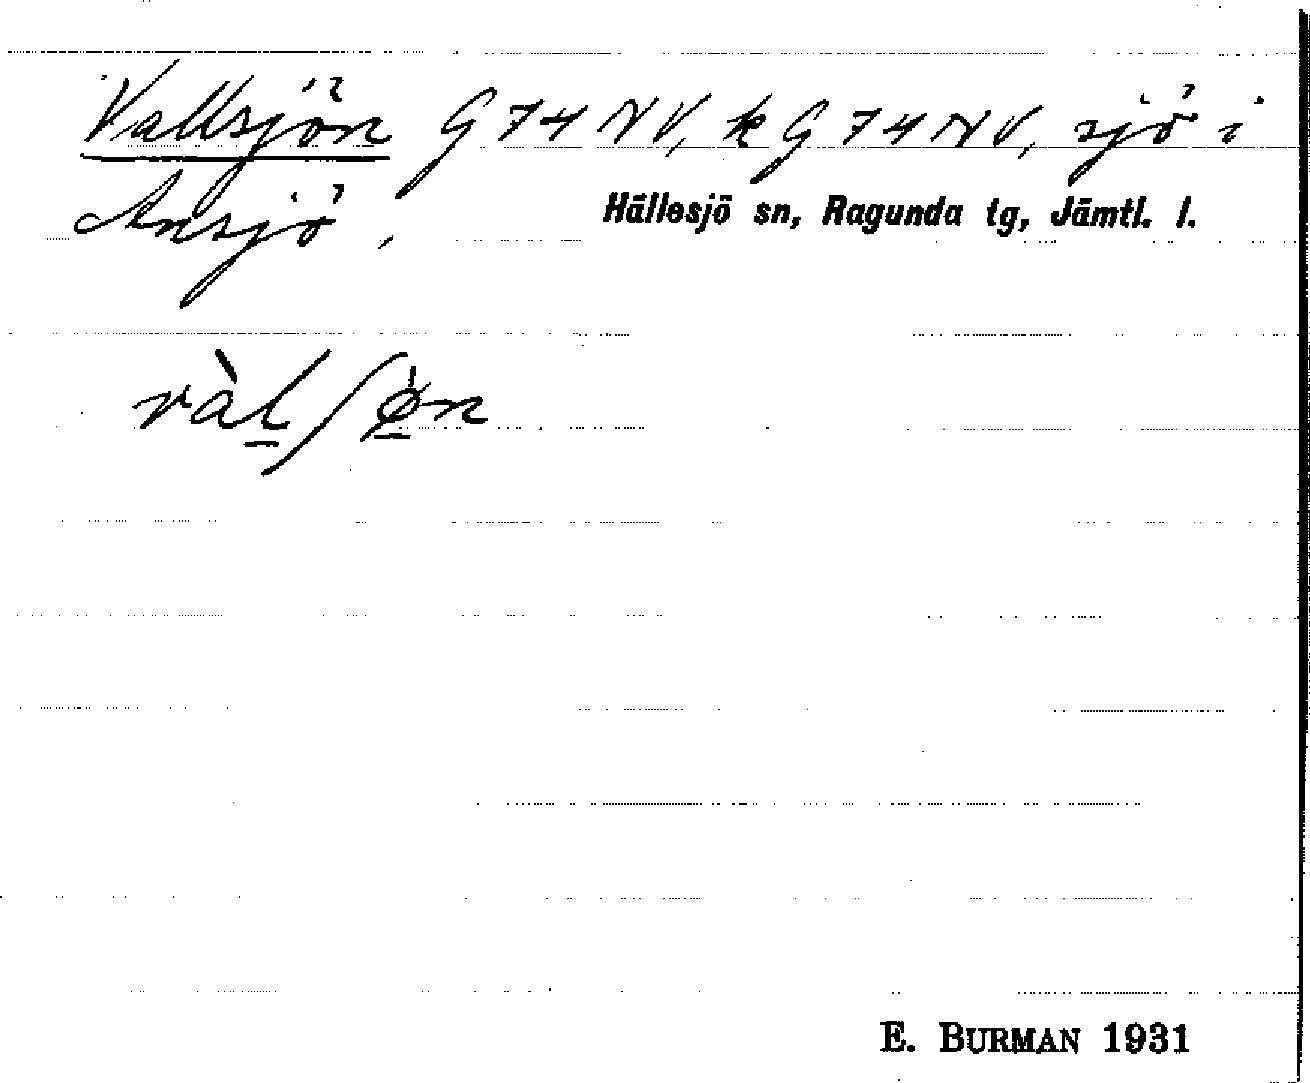 Vallsjön G 74 NV, k G 74 NV, sjö i
Ansjö, Hällesjö sn, Ragunda tg, Jämtl. l.
vàl̠ʃø̠̀n
E. BURMAN 1931